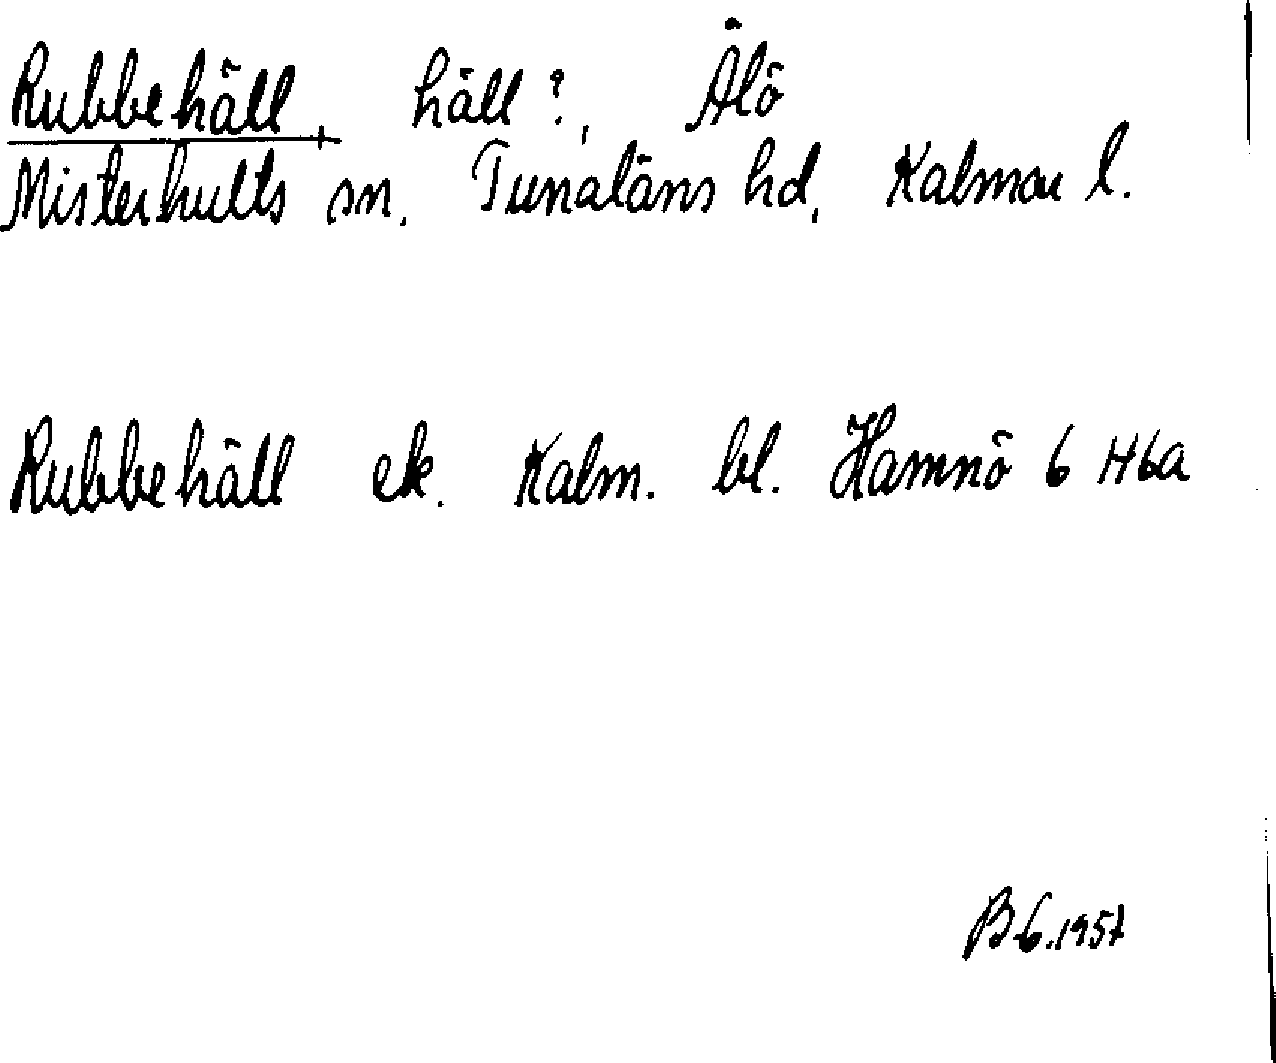 Rubbehäll, häll?, Älö
Misterhults sn. Tunaläns hd, Kalmar l.
Rubbehäll ek. Kalm. bl. Hamnö 6 H6a
B 6.1957